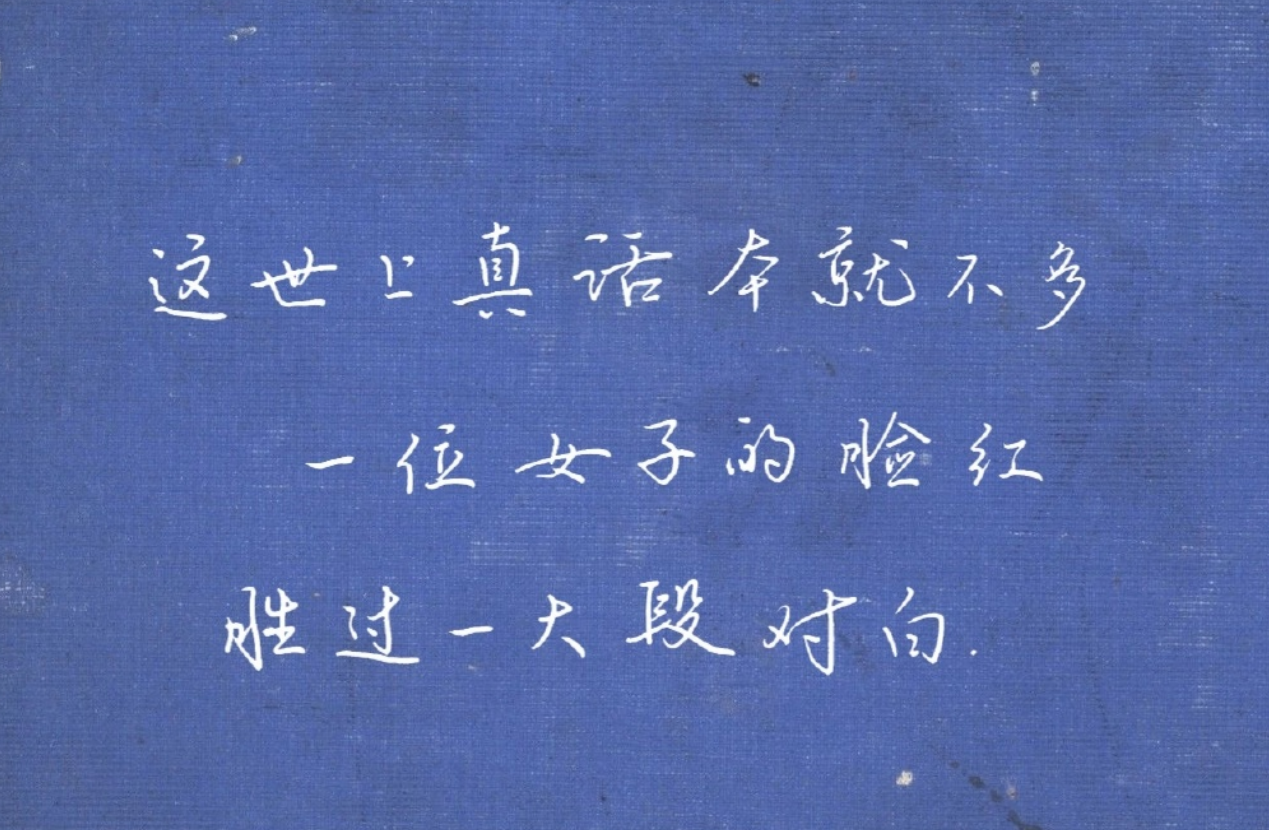 这世上真话本就不多
一位女子的脸红
胜过一大段对白.